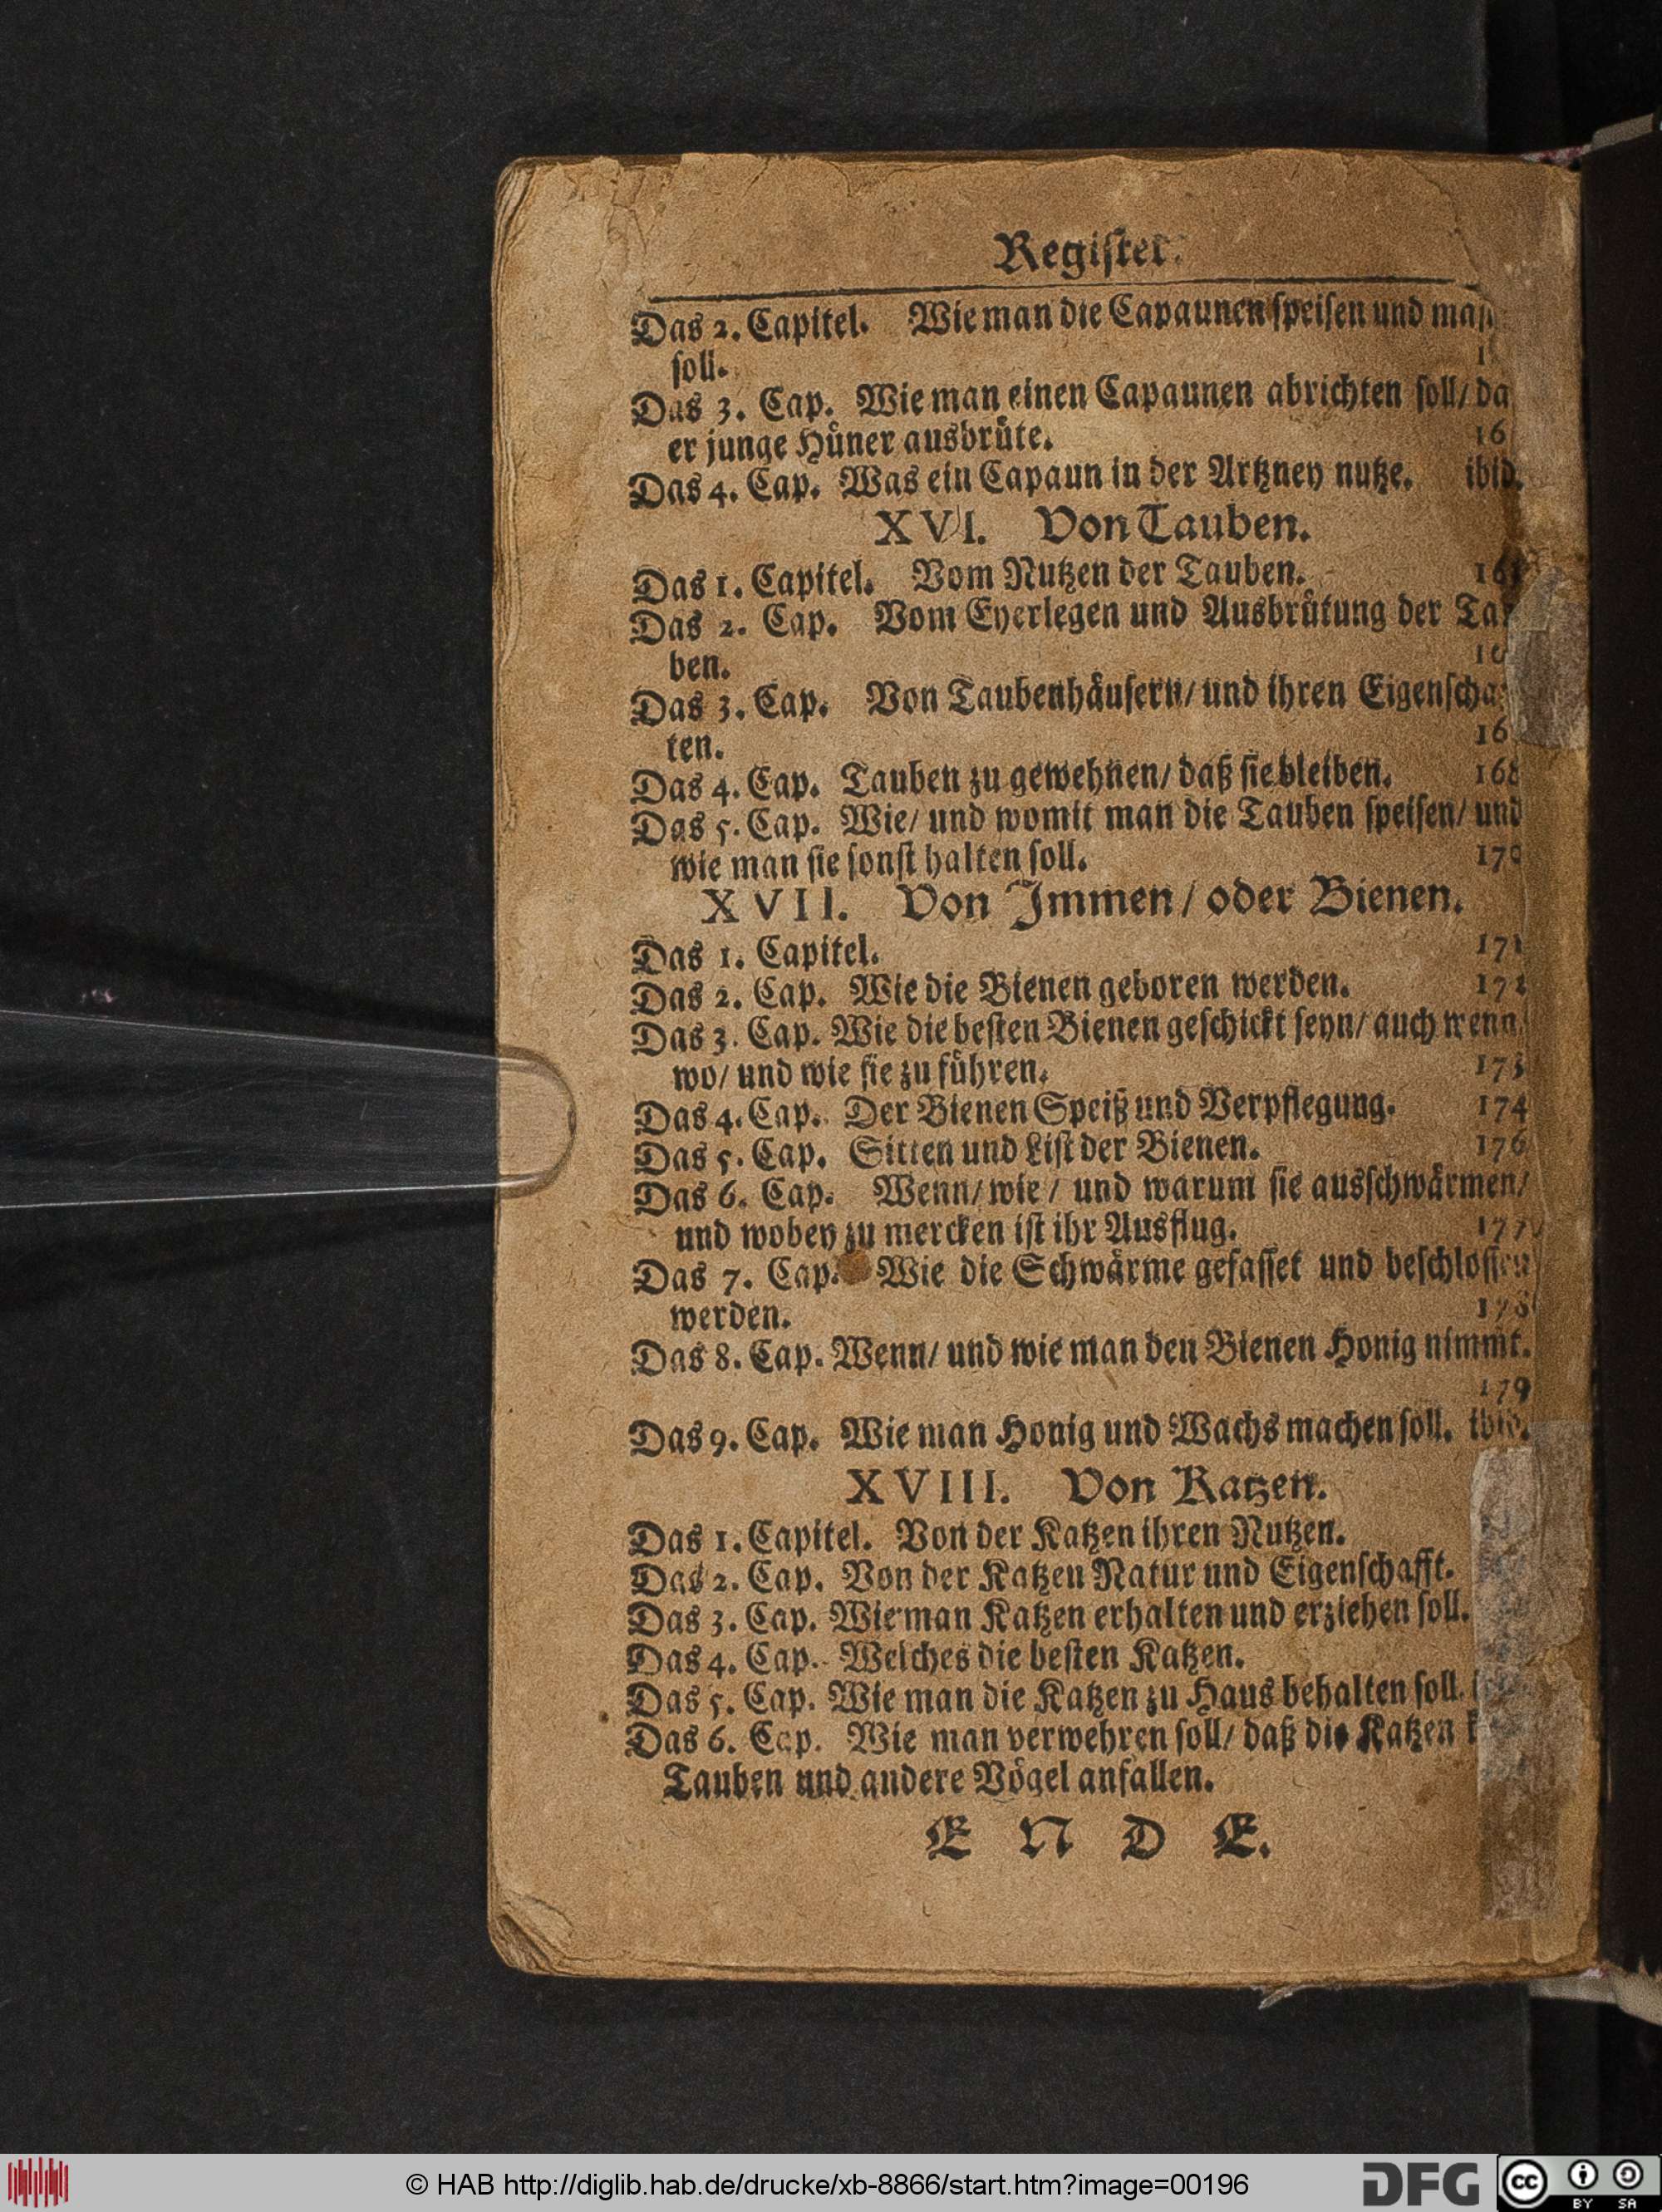 Regiſter.
Das 2. Capitel. Wie man die Capaunen ſpeiſen und
ſoll.
Das 3. Cap. Wie man einen Capaunen abrichten ſoll/
er junge Huͤner ausbruͤte.
Das 4. Cap. Was ein Capaun in der Artzney nutze. ibid.
XVI. Von Tauben.
Das 1. Capitel. Vom Nutzen der Tauben.
Das 2. Cap. Vom Eyerlegen und Ausbruͤtung der
ben.
Das 3. Cap. Von Taubenhaͤuſern/ und ihren
ten.
Das 4. Cap. Tauben zu gewehnen/ daß ſie bleiben. 168
Das 5. Cap. Wie/ und womit man die Tauben ſpeiſen/ und
wie man ſie ſonſt halten ſoll. 170
XVII. Von Immen/ oder Bienen.
Das 1. Capitel. 171
Das 2. Cap. Wie die Bienen geboren werden. 172
Das 3. Cap. Wie die beſten Bienen geſchickt ſeyn/ auch wenn/
wo/ und wie ſie zu fuͤhren. 173
Das 4. Cap. Der Bienen Speiß und Verpflegung. 174
Das 5. Cap. Sitten und Liſt der Bienen. 176
Das 6. Cap. Wenn/ wie/ und warum ſie ausſchwaͤrmen/
und wobey zu mercken iſt ihr Ausflug. 177
Das 7. Cap. Wie die Schwaͤrme gefaſſet und beſchloſſen
werden. 178
Das 8. Cap. Wenn/ und wie man den Bienen Honig nimmt.
179
Das 9. Cap. Wie man Honig und Wachs machen ſoll. ibid.
XVIII. Von Katzen.
Das 1. Capitel. Von der Katzen ihren Nutzen.
Das 2. Cap. Von der Katzen Natur und Eigenſchafft.
Das 3. Cap. Wie man Katzen erhalten und erziehen ſoll.
Das 4. Cap. Welches die beſten Katzen.
Das 5. Cap. Wie man die Katzen zu Haus behalten ſoll.
Das 6. Cap. Wie man verwehren ſoll/ daß die Katzen
Tauben und andere Voͤgel anfallen.
E N D E.
© HAB http://diglib.hab.de/drucke/xb-8866/start.htm?image=00196
DFG
cc BY SA